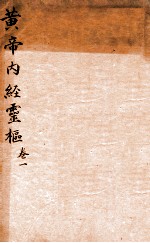 黃帝内經靈樞卷一